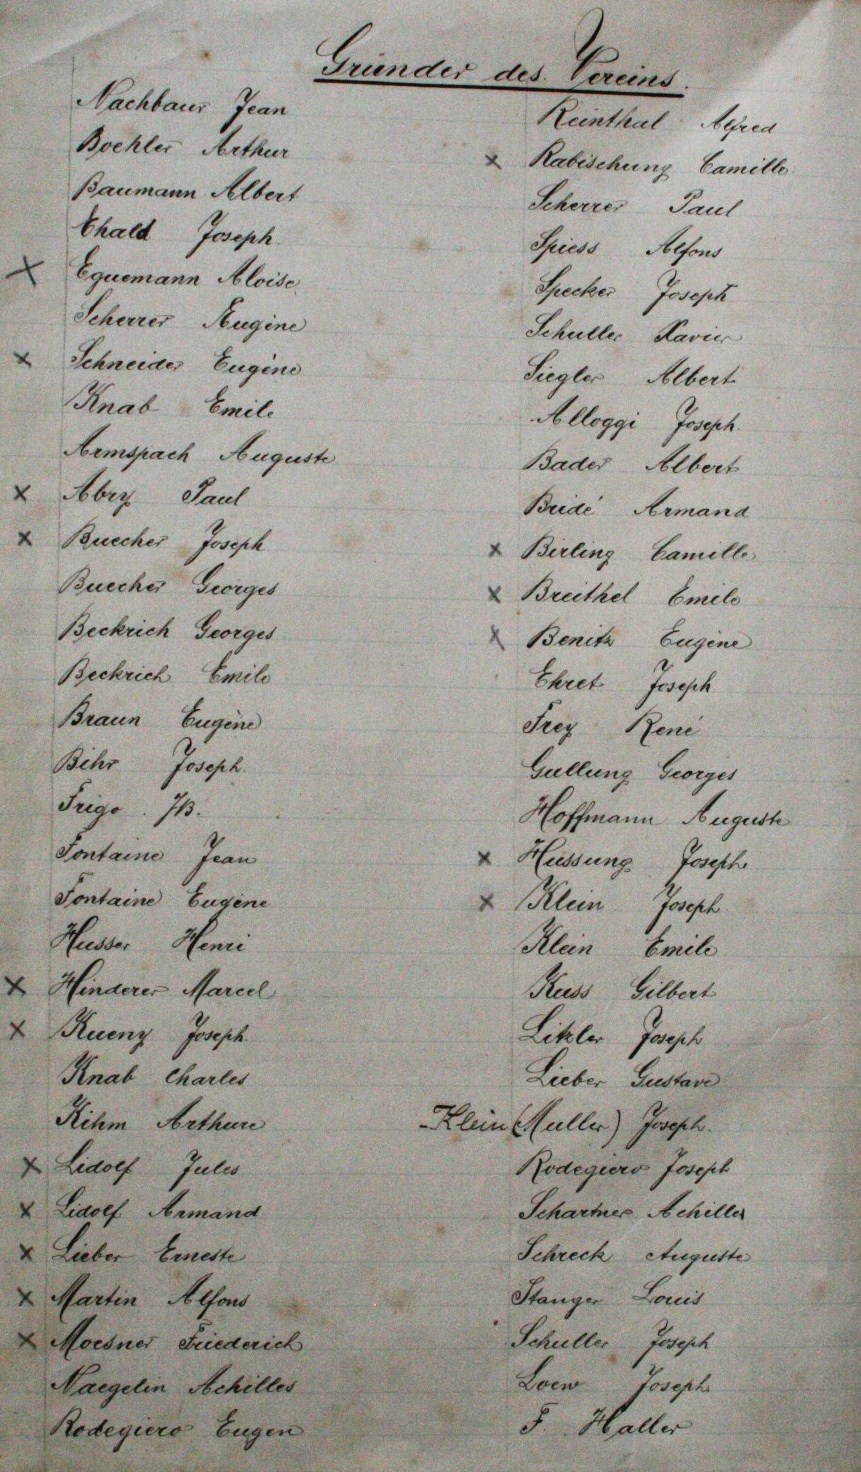 Gründer des Vereins.
Nachbaur Jean
Boehler Arthur
Baumann Albert
Ehald Joseph
x Eguemann Aloise
Scherrer Eugène
x Schneider Eugéne
Knab Emile
Armspach Auguste
x Abry Paul
x Buecher Joseph
Buecher Georges
Beckrich Georges
Beckrich Emile
Braun Eugène
Bihr Joseph
Frigo JB.
Fontaine Jean
Fontaine Eugène
Husser Henri
x Hinderer Marcel
x Kueny Joseph
Knab Charles
Kihm Arthure
x Lidolf Jules
x Lidolf Armand
x Lieber Erneste
x Martin Alfons
x Moesner Friederich
Naegelin Achilles
Rodegiero Eugen
Reinthal Alfred
x Rabischung Camille
Scherrer Paul
Spiess Alfons
Specker Joseph
Schuller Xavier
Siegler Albert
Alloggi Joseph
Bader Albert
Bridé Armand
x Birling Camille
x Breithel Emile
x Benitz Eugène
Ehret Joseph
Frey René
Gullung Georges
Hoffmann Auguste
x Hussung Joseph
x Klein Joseph
Klein Emile
Kuss Gilbert
Litzler Joseph
Lieber Gustave
-Klein (Muller) Joseph.
Rodegiero Joseph
Schartner Achilles
Schreck Auguste
Stanger Louis
Schuller Joseph
Loew Joseph
F. Haller